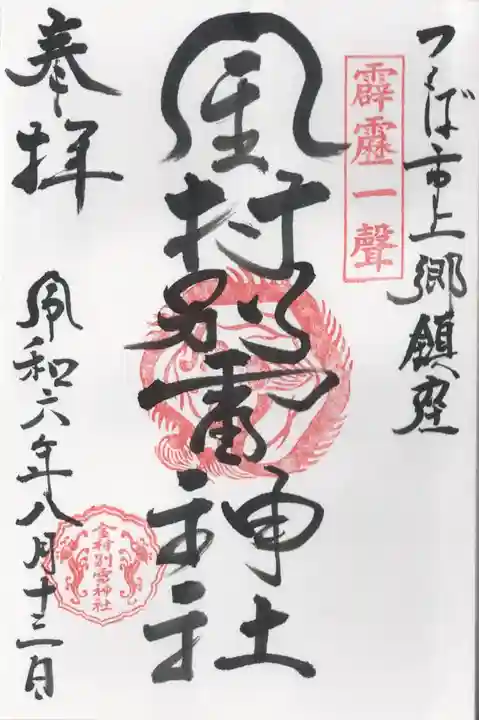 つくば市上郷鎮座
霹靂一聲
金村別雷神社
奉拝
令和六年八月十三日
金村別雷神社